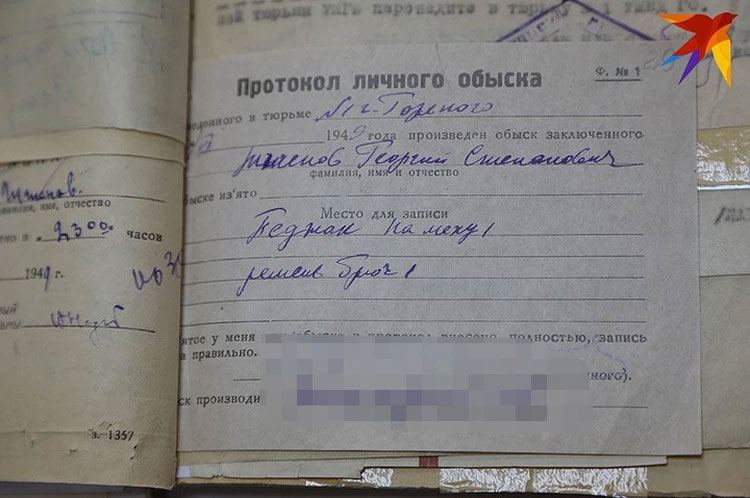 ной тюрьмы УМГБ переведите в тюрьму
Протокол личного обыска
Ф. № 1
веденного в тюрьме №1 г. Горького
1949 года произведен обыск заключенного
Георгий Степанович
фамилия, имя и отчество
обыске из'ято
Место для записи
Педжак на меху 1
ремень брюч 1
ятое у меня полностью, запись
а правильно.
нного).
ск производи
амилия, имя, отчество
но в 2300 часов
1949 г.
ный
з. 1357